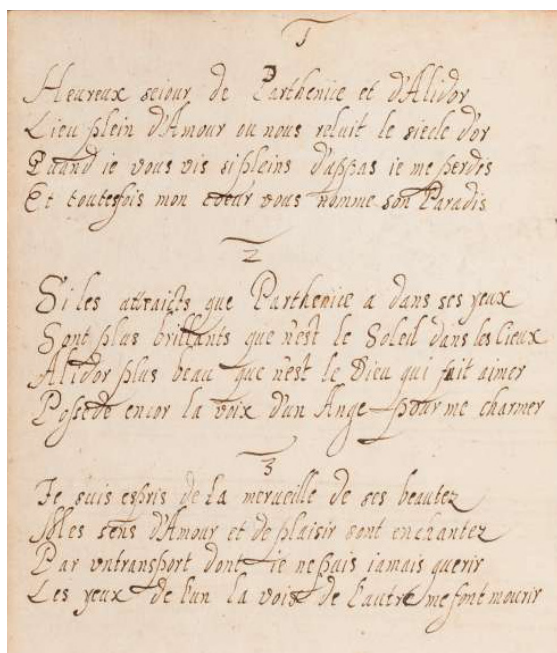 1
Heureux seiour de Parthenice et d'Alidor
Lieu plein d'Amour ou nous reluit le siecle d'or
Quand ie vous vis si pleins d'appas ie me perdis
Et toutesfois mon coeur vous nomme son Paradis
2
Si les attraicts que Parthenice a dans ses yeux
Sont plus brillants que n'est le Soleil dans les Cieux
Alidor plus beau que n'est le Dieu qui fait aimer
Possede encor la voix d'un Ange pour me charmer
3
Je suis espris de la merueille de ses beautez
Mes sens d'Amour et de plaisir sont enchantez
Par vn transport dont ie ne puis iamais guerir
Les yeux de l'un la voix de l'autre me font mourir